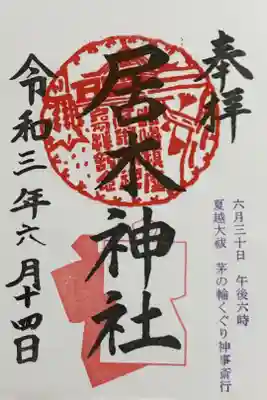 奉拝
六月三十日　午後六時
夏越大祓　茅の輪くぐり神事斎行
居木神社
令和三年六月十四日